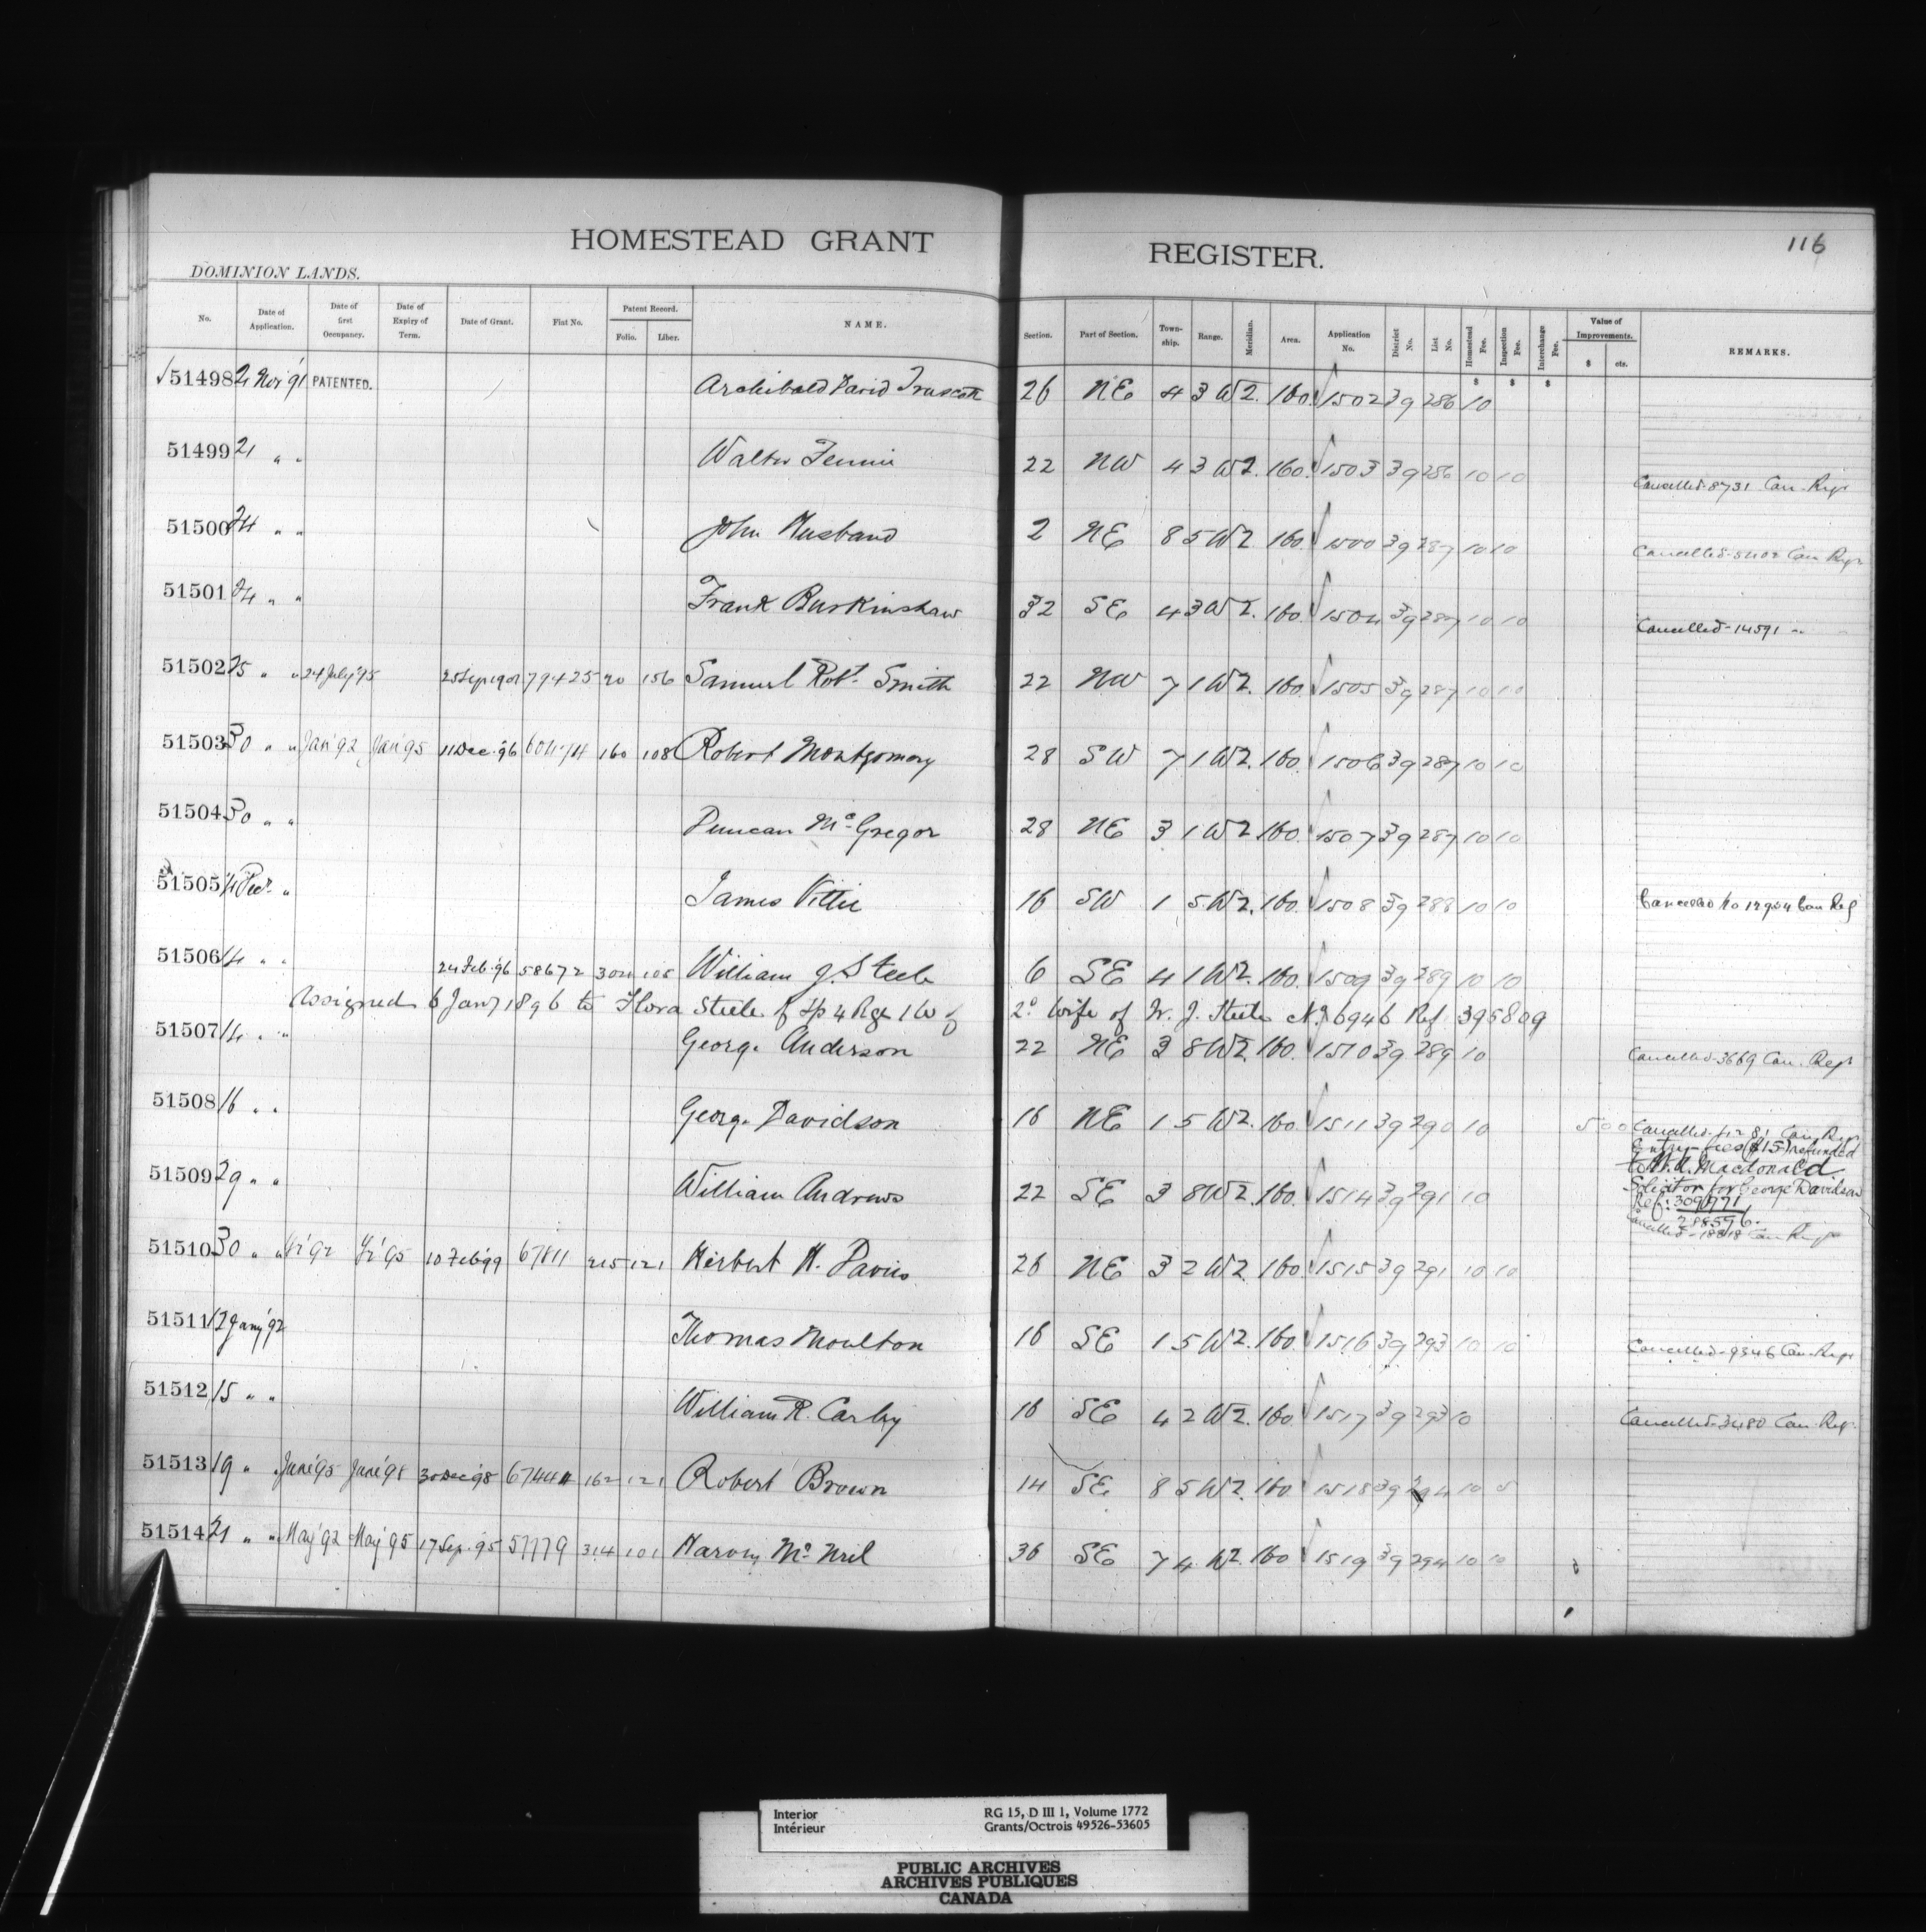 116
HOMESTEAD GRANT REGISTER.
DOMINION LANDS.
No. Date of Application. Date of first Occupancy. Date of Expiry of Term. Date of Grant. Fiat No. Patent Record. Folio. Liber. NAME. Section. Part of Section. Town-ship. Range. Meridian. Area. Application No. District No. List No. Homestead Fee. Inspection Fee. Interchange Fee. Value of Improvements. $ cts. REMARKS.
$ $ $
√51498 21 Nov '91 PATENTED. Archibald David Truscott 26 NE 4 3 W2. 160. 1502 39 286 10
51499 21 " " Walter 22 NW 4 3 W2. 160. 1503 39 286 10 10 Cancelled-8731 Can. Regr
51500 24 " " John Husband 2 NE 8 5 W2 160. 1500 39 287 10 10 Cancelled Can Regr
51501 24 " " Frank Burkinshaw 32 SE 4 3 W2. 160. 1504 39 287 10 10 Cancelled-14591 " "
51502 25 " " 24 July '95 79425 20 156 Samuel Robt. Smith 22 NW 7 1 W2. 160. 1505 39 287 10 10
51503 30 " " Jan '92 Jan '95 11 Dec. '96 160 108 Robert Montgomery 28 SW 7 1 W2. 160. 1506 39 287 10 10
51504 30 " " Duncan McGregor 28 NE 3 1 W2 160. 1507 39 287 10 10
51505 14 Decr. " James Vittie 16 SW 1 5 W2. 160. 1508 39 288 10 10 Cancelled No 12904 Can Reg
51506 14 " " 24 Feb. '96 58672 William J. Steele 6 SE 4 1 W2. 160. 1509 39 289 10 10
Assigned 6 Jany 1896 to Flora Steele of Tp 4 Rge 1 W of 2d wife of W. J. Steele No 6946 Ref. 395809
51507 14 " " George Anderson 22 NE 3 8 W2. 160. 1510 39 289 10 Cancelled-3669 Can. Regr
51508 16 " " George Davidson 16 NE 1 5 W2. 160. 1511 39 290 10 Cancelled Can. Regr
Entry fees ($15) refunded
to Macdonald
Solicitor for George Davidson
Ref: 309971
288596.
51509 29 " " William Andrews 22 SE 3 8 W2. 160. 1514 39 291 10 Cancelled-18818 Can Regr
51510 30 " " '92 '95 10 Feb '99 67811 215 121 Herbert H. Davies 26 NE 3 2 W2. 160. 1515 39 291 10 10
51511 12 Jany '92 Thomas Moulton 16 SE 1 5 W2. 160. 1516 39 293 10 10 Cancelled-9346 Can. Regr
51512 15 " " William R. Carley 16 SE 4 2 W2. 160. 1517 39 293 10 Cancelled-3480 Can. Regr.
51513 19 " " June '95 June '98 30 Dec '98 162 121 Robert Brown 14 SE 8 5 W2. 160 1518 39 294 10 5
51514 21 " " May '92 May '95 17 Sep. '95 57779 314 101 Harvey McNeil 36 SE 7 4 W2. 160 1519 39 294 10 10
Interior RG 15, D III 1, Volume 1772
Intérieur Grants/Octrois 49526-53605
PUBLIC ARCHIVES
ARCHIVES PUBLIQUES
CANADA